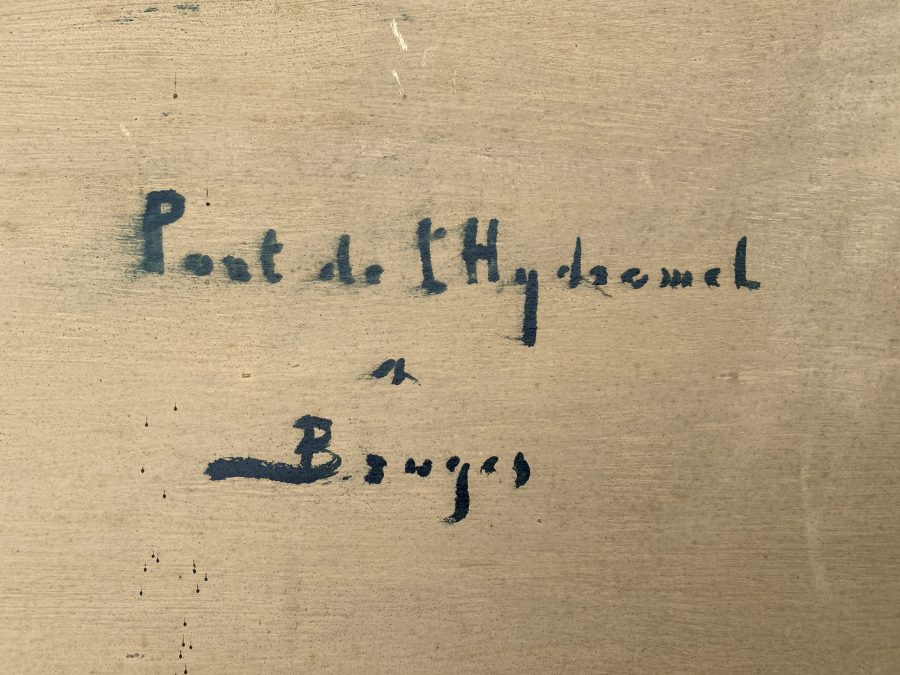 Pont de l'Hydromel
a
Bruges